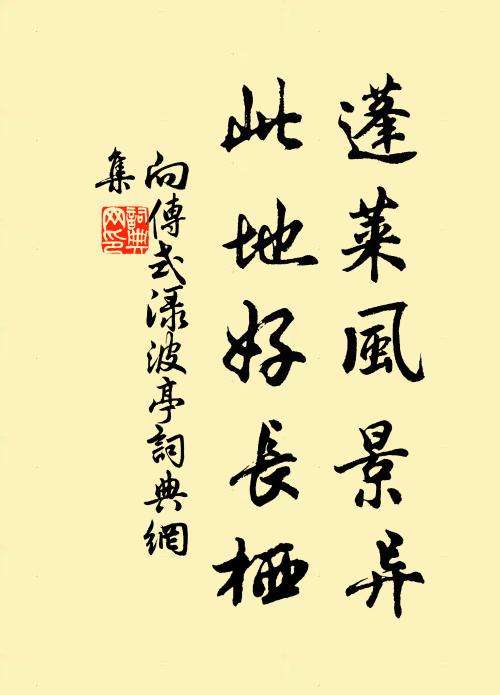 蓬萊風景异
此地好長栖
向傳式淥波亭詞典網
集
詞典
网印